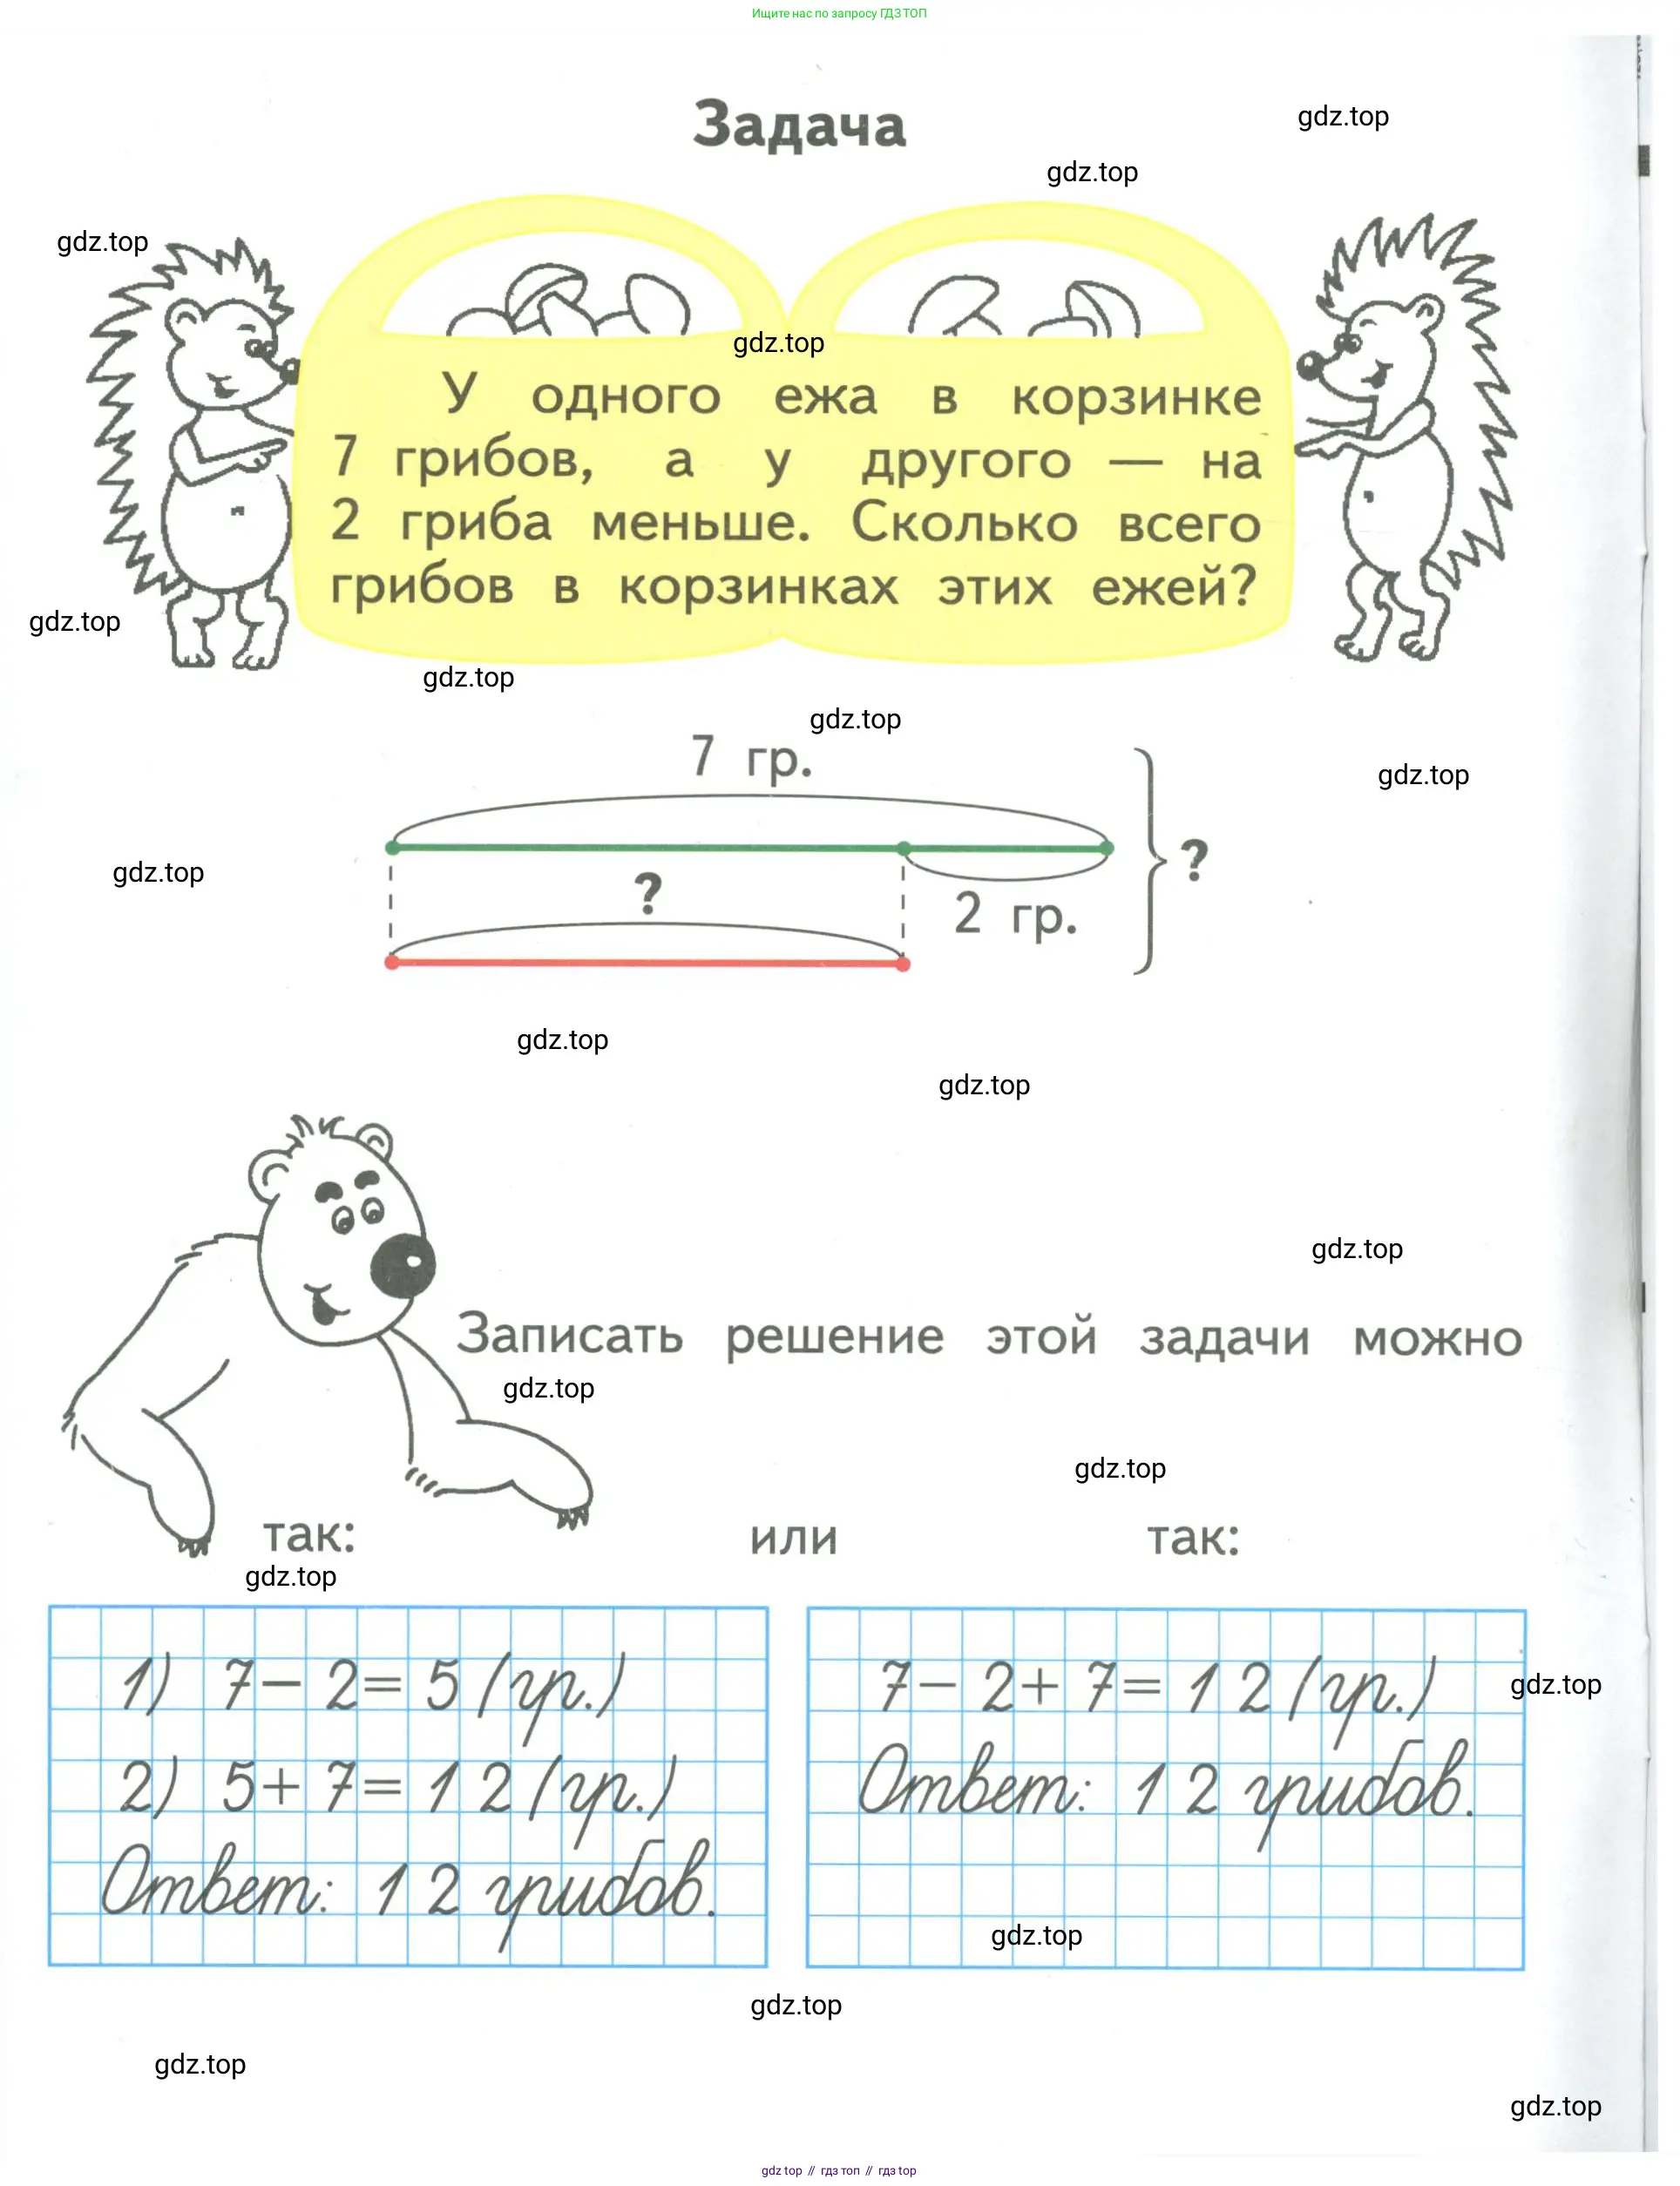 Ищите нас по запросу ГДЗ ТОП
Задача
gdz.top
gdz.top
gdz.top
gdz.top
У одного ежа в корзинке
7 грибов, а у другого — на
2 гриба меньше. Сколько всего
грибов в корзинках этих ежей?
gdz.top
gdz.top
gdz.top
7 гр.
gdz.top
?
gdz.top
?
2 гр.
gdz.top
gdz.top
gdz.top
Записать решение этой задачи можно
gdz.top
gdz.top
так: или так:
gdz.top
1) 7 – 2 = 5 (гр.)
2) 5 + 7 = 12 (гр.)
Ответ: 12 грибов.
7 – 2 + 7 = 12 (гр.)
gdz.top
Ответ: 12 грибов.
gdz.top
gdz.top
gdz.top
gdz.top
gdz top // гдз топ // гдз top